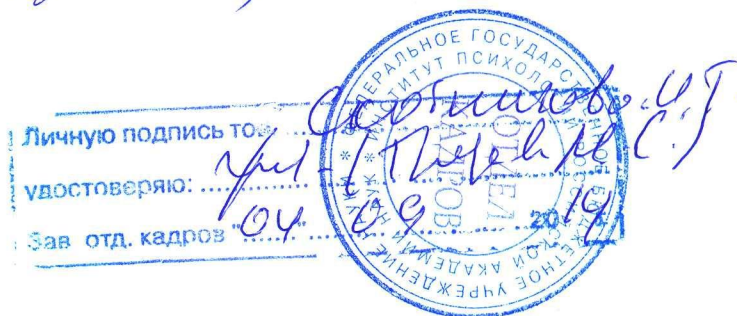 Личную подпись тов.
удостоверяю:
Зав отд. кадров "04" 09 2014
ФЕДЕРАЛЬНОЕ ГОСУДАРСТВЕННОЕ БЮДЖЕТНОЕ УЧРЕЖДЕНИЕ НАУКИ *
ИНСТИТУТ ПСИХОЛОГИИ РОССИЙСКОЙ АКАДЕМИИ НАУК *
ОТДЕЛ
КАДРОВ